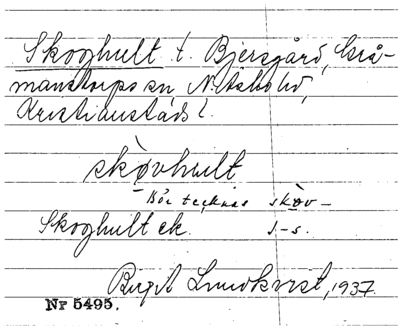 Skoghult t. Bjersgård, Grå-
manstorps sn N. Åsbo hd,
Kristianstads l.
skòvhult
Bör tecknas skòv-
Skoghult ek. s-s.
Birgit Lundkvist, 1937.
Nr 5495.